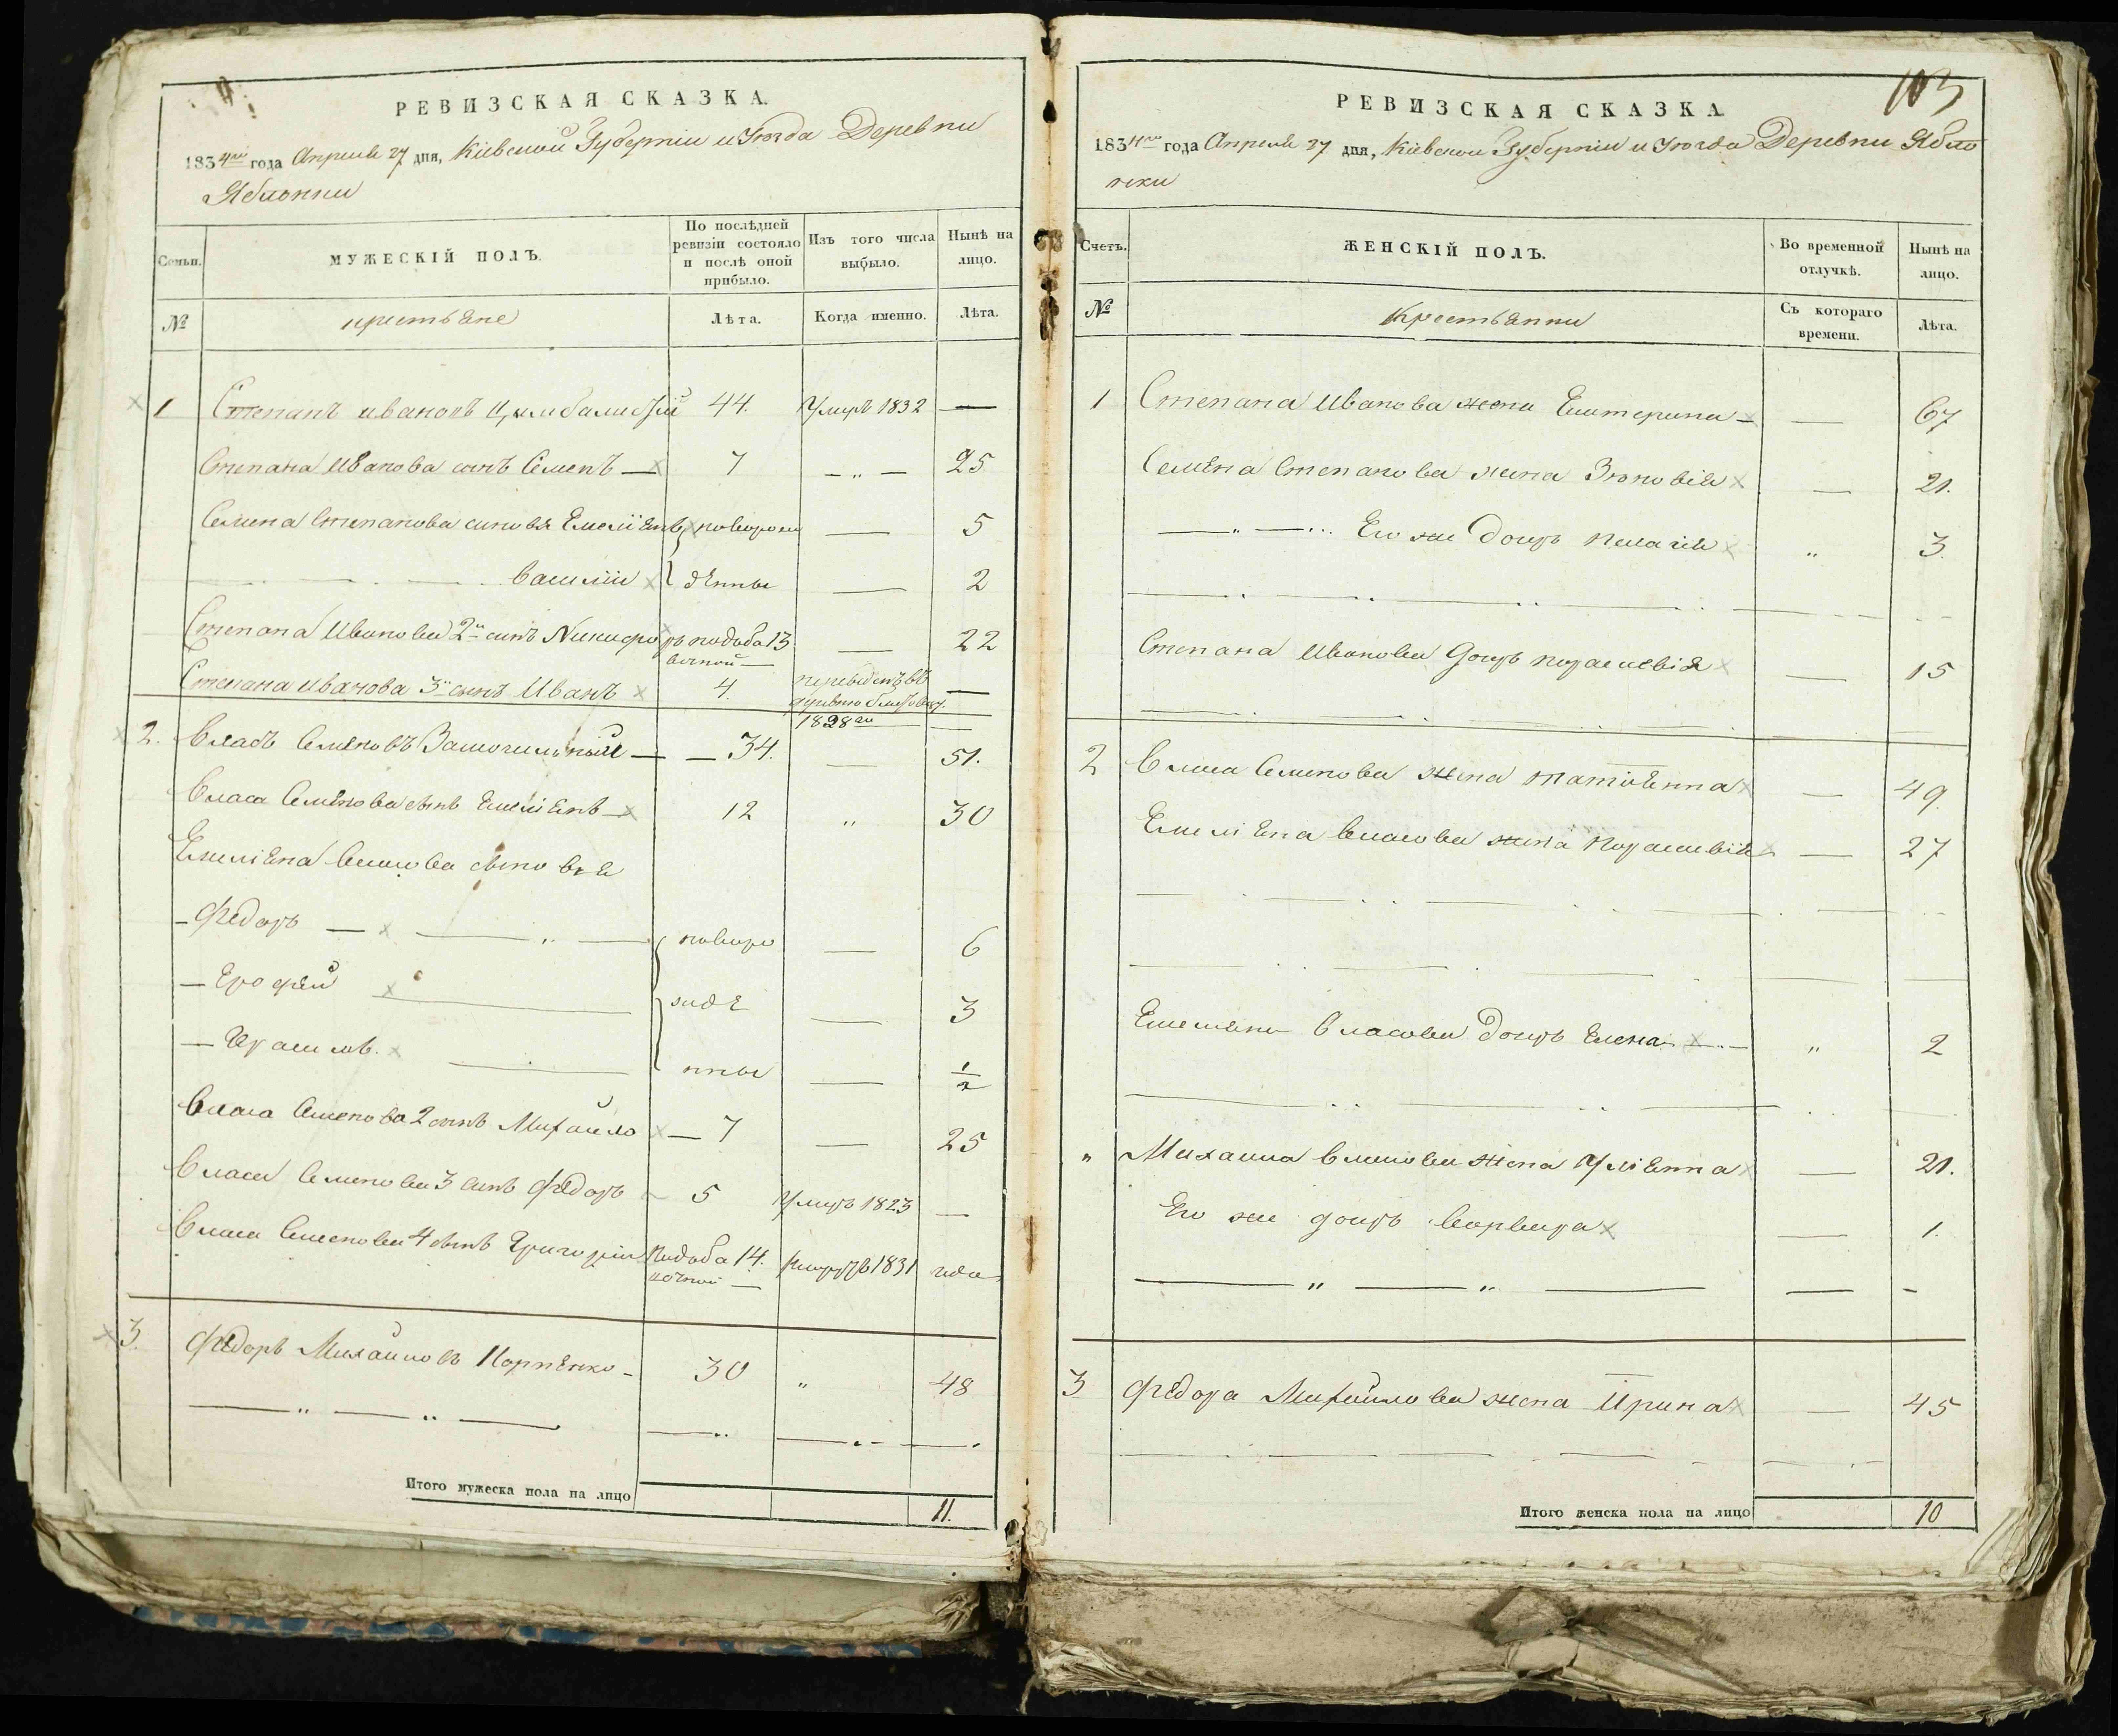 РЕВИЗСКАЯ СКАЗКА.
1834го года Апреля 27 дня, Кіевской Губерніи и Уѣзда Деревни
Яблонки
Семьи. МУЖЕСКІЙ ПОЛЪ. По послѣдней ревизіи состояло и послѣ оной прибыло. Изъ того числа выбыло. Нынѣ на лицо.
№ крестьяне Лѣта. Когда именно. Лѣта.
1 Степанъ ивановъ 44. Умиръ 1832 —
Степана Иванова сынъ Семенъ — 7 — „ — 25
Семена Степанова сыновя Емеліянъ новорож — 5
Василіи дѣнны — 2
Степана Иванова 2й сынъ Никифоръ подъба 13 — 22
вочной —
Степана Иванова 3й сынъ Иванъ 4. переведенъ въ —
деревню
1828 го
2. Власъ Семеновъ — 34. — 51.
Власа Семенова сынъ Емеліянъ 12 „ 30
Емеліяна Власова сыновья
– Федоръ — новоро — 6
— Ерофѣй жидѣ — 3
— Герасимъ. нны — 1/2
Власа Семенова 2 сынъ Михайло — 7 — 25
Власа Семенова 3 сынъ Федоръ 5 Умиръ 1823 —
Власа Семенова 4 сынъ Григорій Подъба 14. 1831 года
вочной —
3. Федоръ Михайловъ Карпенко 30 „ 48
Итого мужеска пола на лицо 11.
103
РЕВИЗСКАЯ СКАЗКА.
1834го года Апреля 27 дня, Кіевской Губерніи и Уѣзда Деревни Ябло
нки
Счетъ. ЖЕНСКІЙ ПОЛЪ. Во временной отлучкѣ. Нынѣ на лицо.
№ Крестьянки Съ котораго времени. Лѣта.
1 Степана Иванова жена Екатерина — 67
Семена Степанова жена Зѣновія — 21.
— „ — Его же дочеръ Пелагія „ 3.
Степана Иванова дочеръ Параскевія — 15
2 Власа Семенова жена Татиянна — 49
Емеліяна Власова жена Параскевія — 27
Емеляна Власова дочеръ Елена „ 2
„ Михаила Власова жена Уліянна — 21.
Его же дочеръ Варвара — 1.
3 Федора Михайлова жена Ирина — 45
Итого женска пола на лицо 10